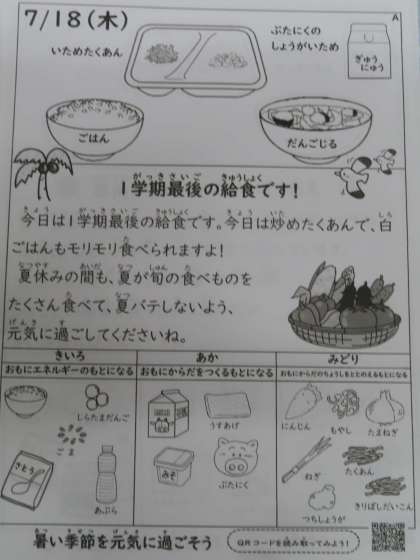 7/18(木)
A
いためたくあん
ぶたにくの
しょうがいため
ぎゅう
にゅう
ごはん
だんごじる
1学期最後の給食です!
今日は1学期最後の給食です。今日は炒めたくあんで、白
ごはんもモリモリ食べられますよ!
夏休みの間も、夏が旬の食べものを
たくさん食べて、夏バテしないよう、
元気に過ごしてくださいね。
きいろ
おもにエネルギーのもとになる
あか
おもにからだをつくるもとになる
みどり
おもにからだのちょうしをととのえるもとになる
しらたまだんご
ごま
さとう
あぶら
うすあげ
みそ
ぶたにく
にんじん
もやし
たまねぎ
ねぎ
たくあん
つちしょうが
きりぼしだいこん
暑い季節を元気に過ごそう
QRコードを読み取ってみよう!